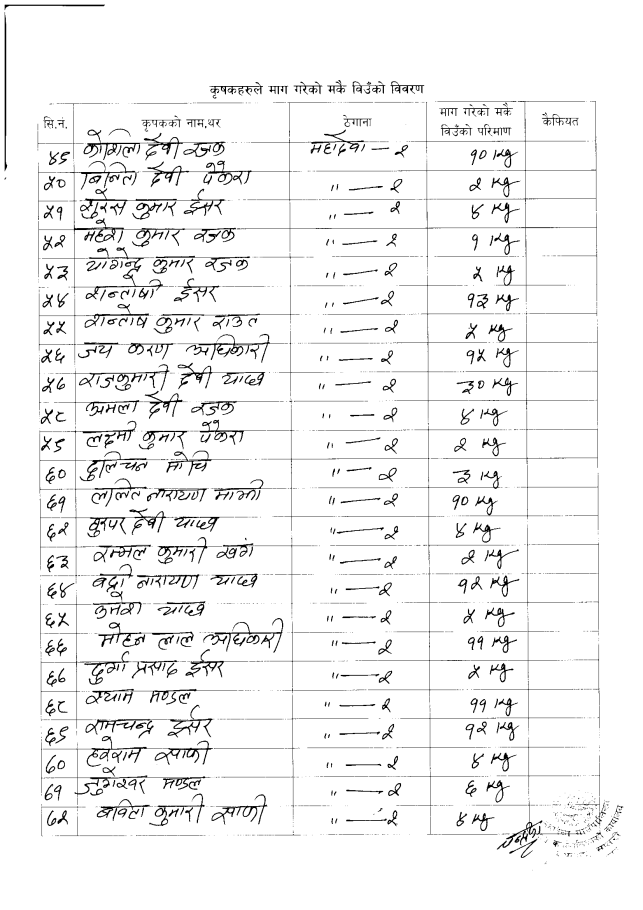 कृषकहरुले माग गरेको मकै विउँको विवरण
सि.नं. कृषकको नाम,थर ठेगाना माग गरेको मकै विउँको परिमाण कैफियत
४९ कोशिला देवी रजक महादेवा — २ १० kg
५० बिनिता देवी पैकरा " — २ २ kg
५१ सुरेस कुमार ईसर " — २ ४ kg
५२ महेश कुमार रजक " — २ १ kg
५३ योगेन्द्र कुमार रजक " — २ ५ kg
५४ शन्तोषी ईसर " — २ १३ kg
५५ शन्तोष कुमार राउत " — २ ५ kg
५६ जय करण अधिकारी " — २ १५ kg
५७ राजकुमारी देवी यादव " — २ ३० kg
५८ अमला देवी रजक " — २ ४ kg
५९ लक्ष्मी कुमार पैकरा " — २ २ kg
६० दुलिचन मोचि " — २ ३ kg
६१ ललित नारायण माझी " — २ १० kg
६२ सुरपर देवी यादव " — २ ४ kg
६३ रम्भल कुमारी खंग " — २ २ kg
६४ बद्री नारायण यादव " — २ १२ kg
६५ उमेश यादव " — २ ५ kg
६६ मोहन लाल अधिकारी " — २ ११ kg
६७ दुर्गा प्रसाद ईसर " — २ ५ kg
६८ श्याम मण्डल " — २ ११ kg
६९ रामचन्द्र ईसर " — २ १२ kg
७० हवेराम साफी " — २ ४ kg
७१ जुगेश्वर मण्डल " — २ ६ kg
७२ बबिता कुमारी साफी " — २ ४ kg